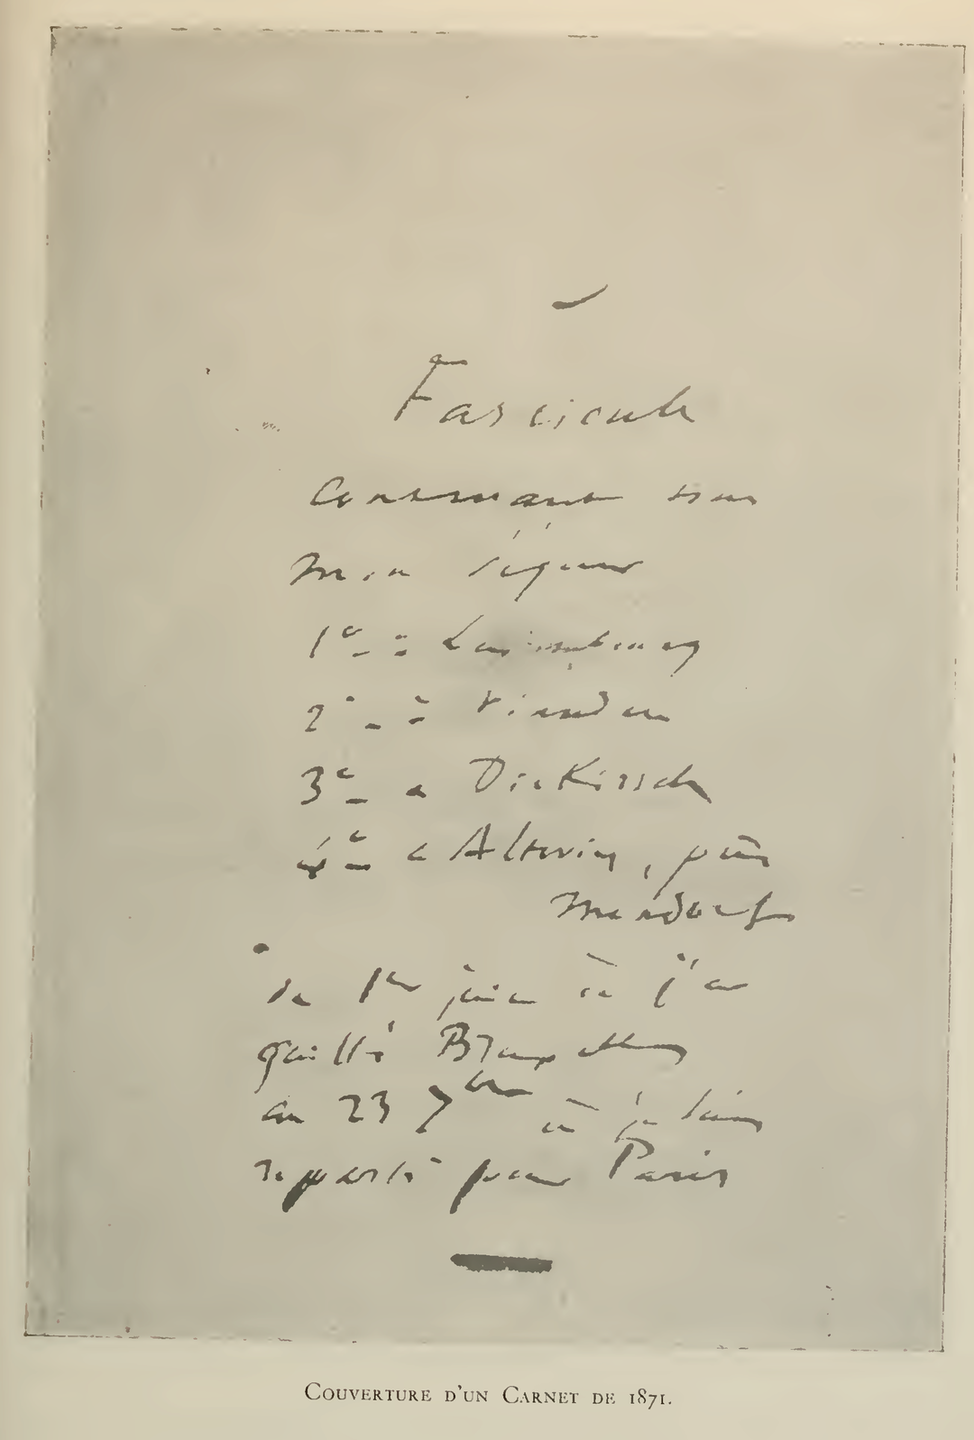 Fascicule
contenant tout
mon séjour
1º- à Luxembourg
2º- à Vianden
3º- à Diekirch
4º- à Altwies, près
Mondorf
du 1er juin où j'ai
quitté Bruxelles
au 23 7bre où je suis
reparti pour Paris
COUVERTURE D'UN CARNET DE 1871.